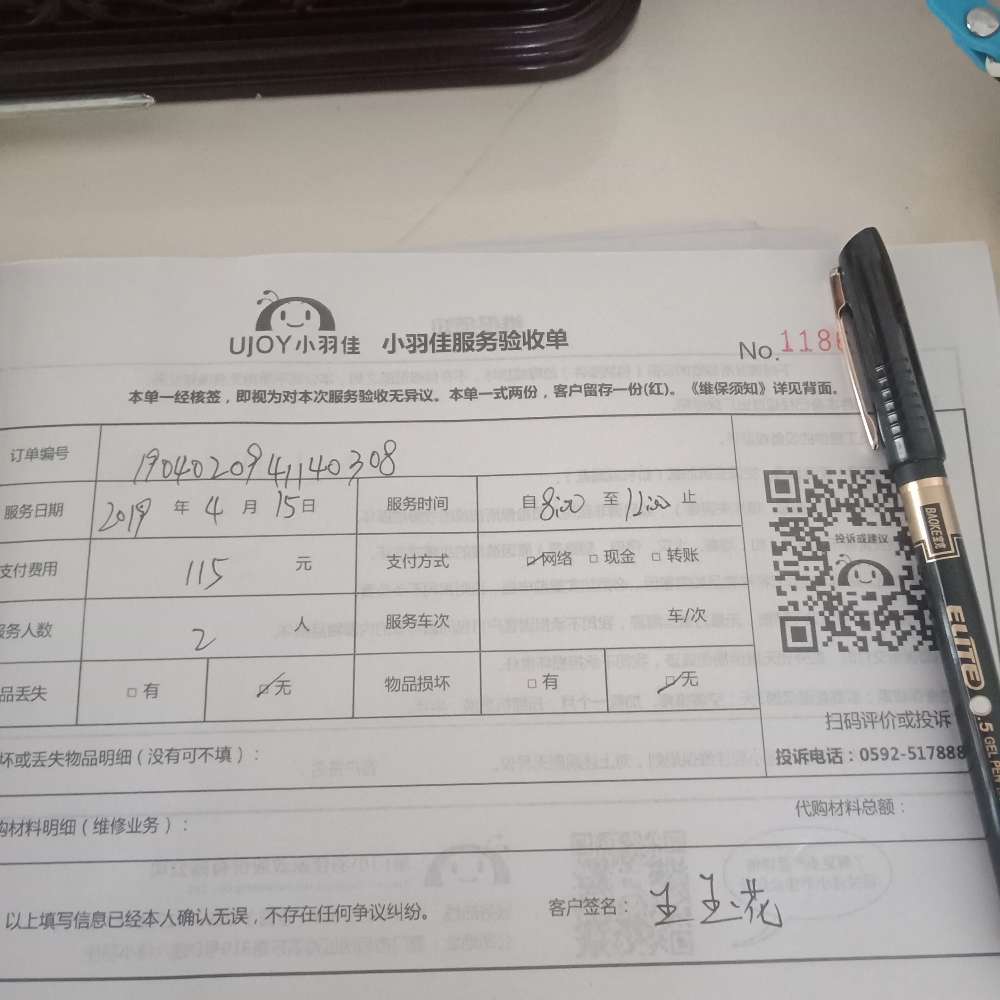 UJOY小羽佳 小羽佳服务验收单 No.118
本单一经核签，即视为对本次服务验收无异议。本单一式两份，客户留存一份(红)。《维保须知》详见背面。
订单编号 1904020941140308
服务日期 2019 年 4 月 15 日 服务时间 自 8:00 至 11:00 止
支付费用 115 元 支付方式 网络 现金 转账
务人数 2 人 服务车次 车/次
品丢失 有 无 物品损坏 有 无
投诉或建议
扫码评价或投诉
投诉电话：0592-517888
坏或丢失物品明细（没有可不填）：
购材料明细（维修业务）： 代购材料总额：
以上填写信息已经本人确认无误，不存在任何争议纠纷。 客户签名：王玉花
BAOKE宝克
ELITE
.5 GEL PEN